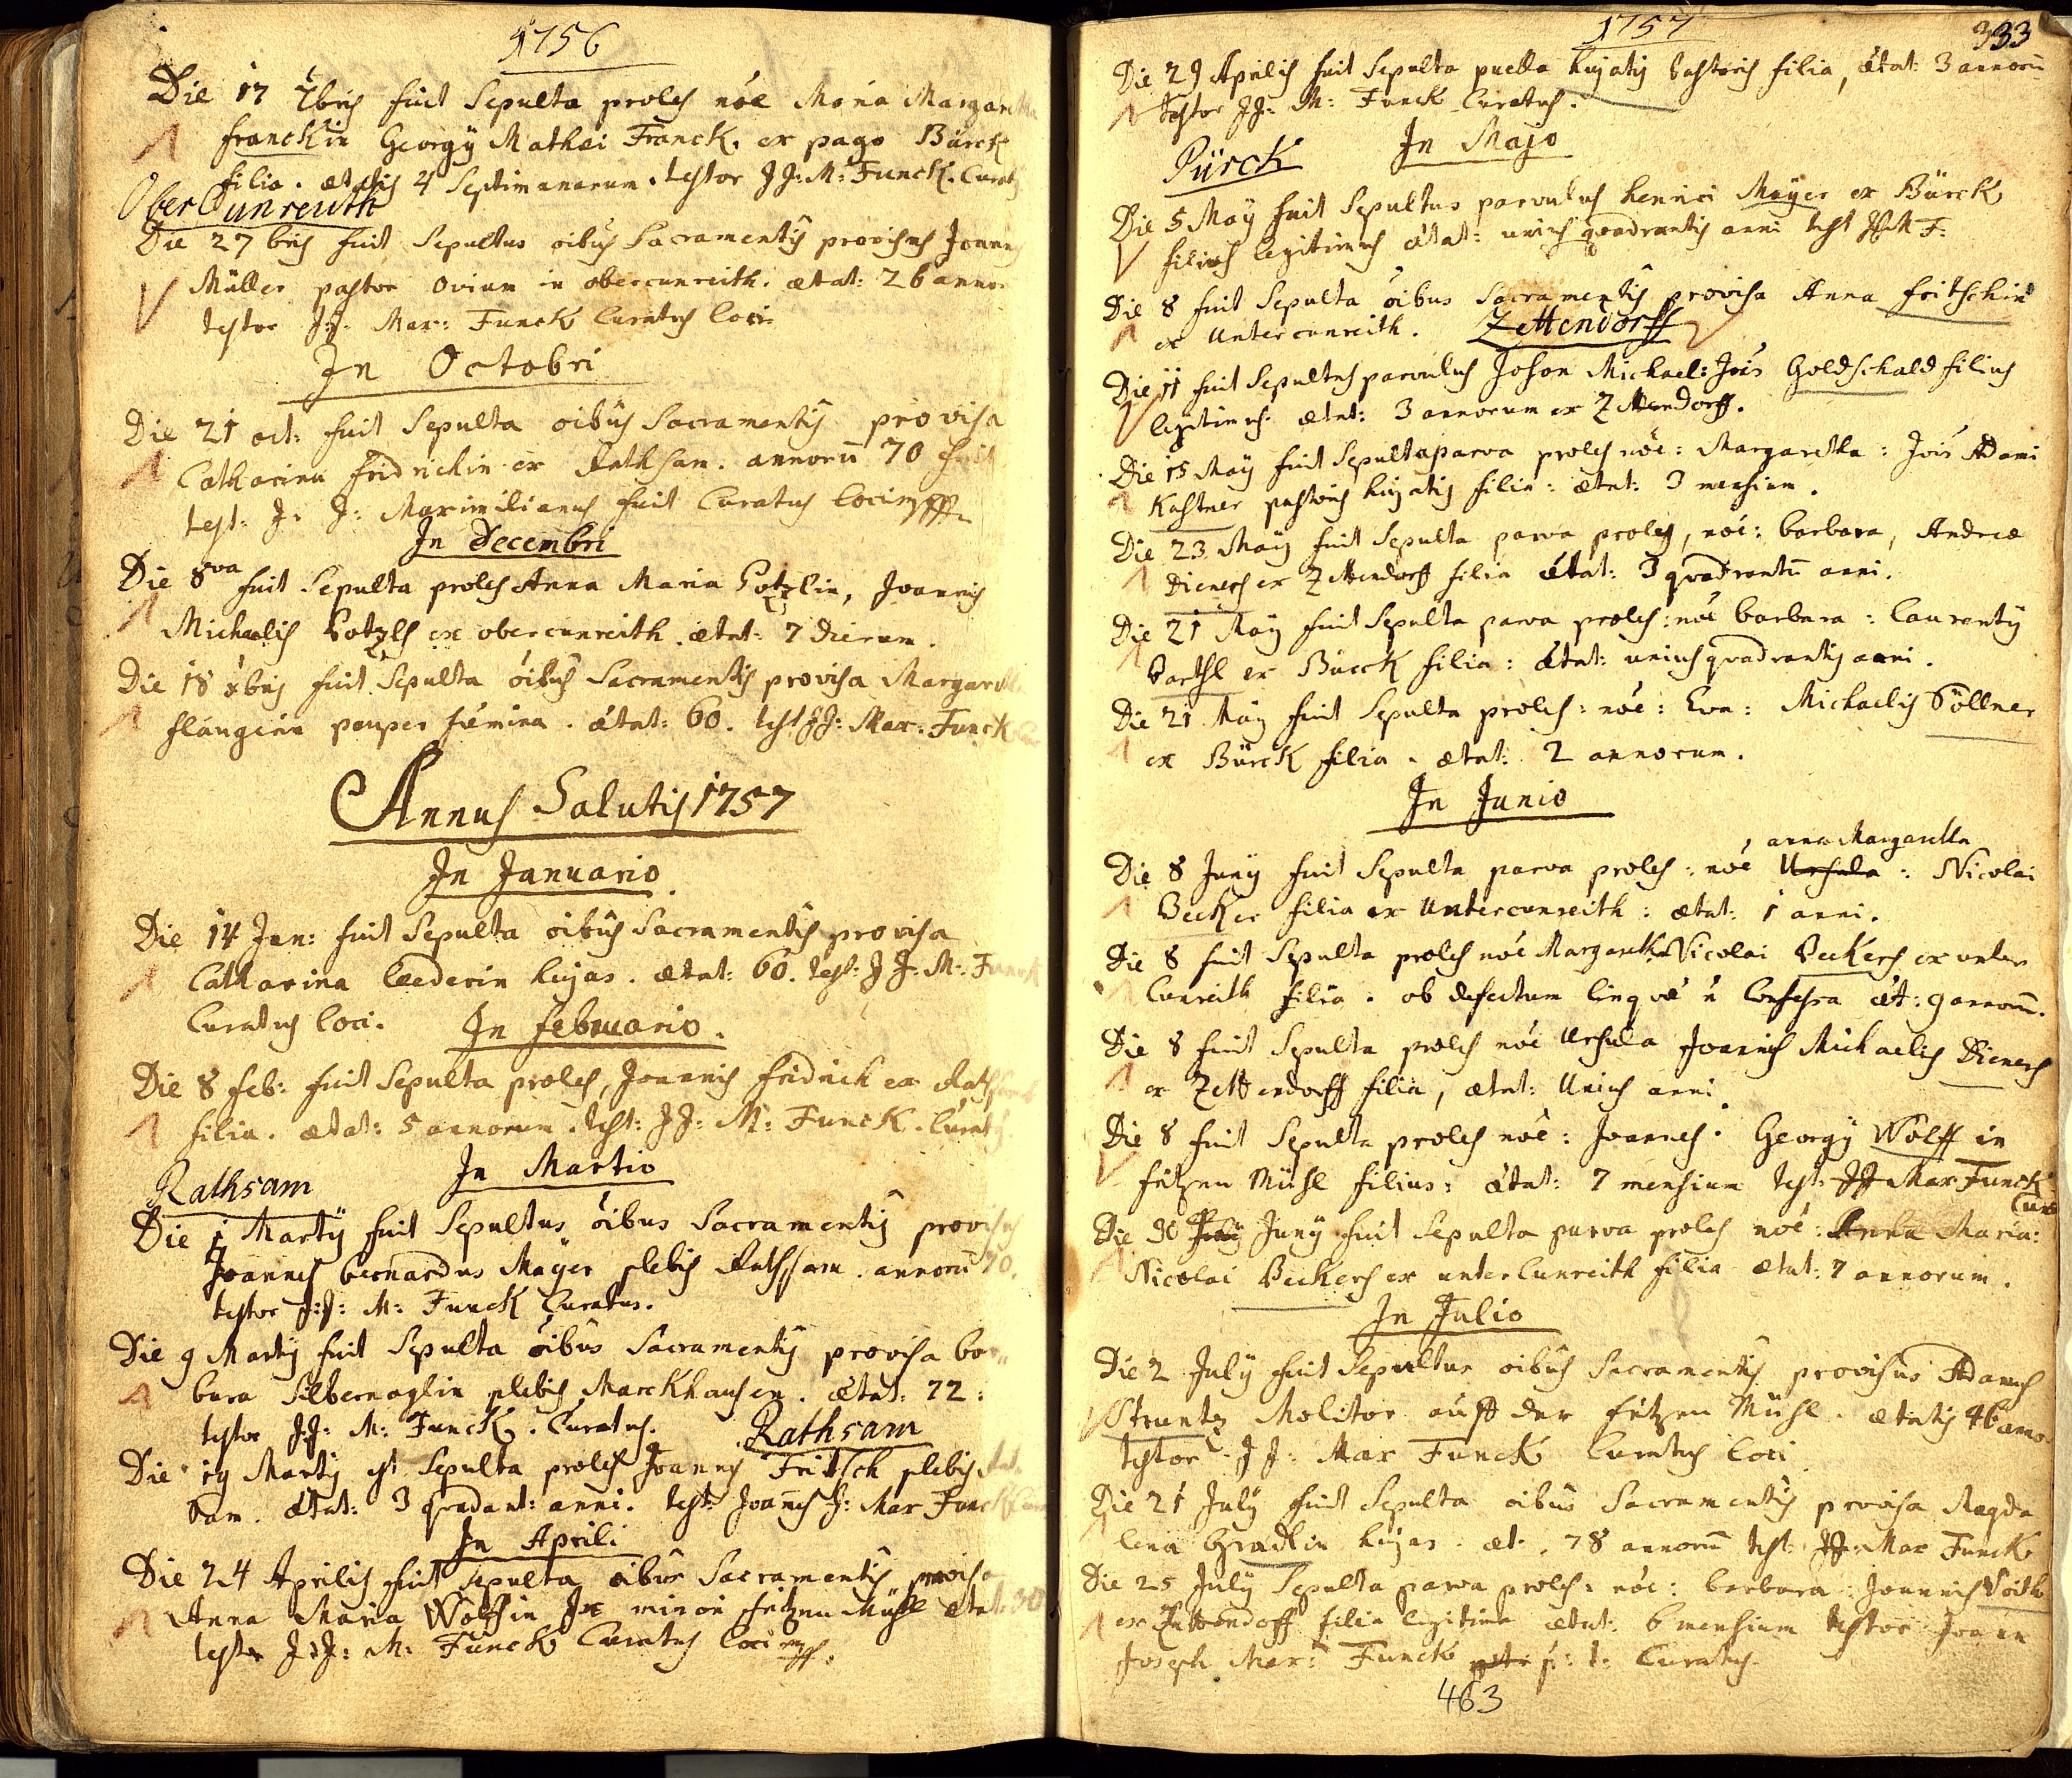 1756
Die 17 7bris fuit Sepulta proles nõe Maria Margaretha
franckin Georgÿ Mathæi Franck, ex pago Bürck
filia. ætatis 4 Septimanarum. testor J J: M: Funck. Curatus
Ober Cunreuth
Die 27 bris fuit Sepultus oibus Sacramentis provisus Joannes
Müller pastor ovium in obercunreith. ætat: 26 annor
testor J: J: Max: Funck Curatus loci
In Octobri
Die 21 oct: fuit Sepulta oibus Sacramentis provisa
Catharina fridrichin ex Rathsam. annorũ 70 fuit
test: J: J: Maximilianus Curatus loci
In Decembri
Die 8va fuit Sepulta proles Anna Maria Potzlin, Joannis
Michaelis Potzls ex obercunreith. ætat: 7 dierum.
Die 18 xbris fuit Sepulta oibus Sacramentis provisa Margaretha
pauper fæmina. ætat: 60. test JJ: Max: Funck
Annus Salutis 1757
In Januario
Die 14 Jan: fuit Sepulta oibus Sacramentis provisa
Catharina Lederin hujas. ætat: 60. test: J J: M: Funck
Curatus loci. In februario.
Die 8 feb: fuit Sepulta proles, Joannis fridrich ex Rathsam
filia. ætat: 5 annorum. test: J J: M: Funck. Curatus
Rathsam In Martio
Die 1 Martÿ fuit Sepultus oibus Sacramentis provisus
Joannes bernardus Mayer plebis Rathsam. annorũ 70.
testor J: J: M: Funck Curatus.
Die 9 Martÿ fuit Sepulta oibus Sacramentis provisa bar
bara Silbernaglin plebis Marckhausen. ætat: 72:
testor J J: M: Funck. Curatus. Rathsam
Die 19 Martÿ est Sepulta proles Joannis Fritsch plebis Rat
sam. ætat: 3 quadrant: anni. test: Joannes J: Max Funck
In Aprili
Die 24 Aprilis fuit Sepulta oibus Sacramentis provisa
Anna Maria Wolffin minori fitzen Mühl ætat: 30
testor J: J: M: Funck Curatus loci
1757 333
Die 29 Aprilis fuit Sepulta puella hujatis pastoris filia, ætat: 3 annorũ
testor J J: M: Funck Curatus.
Pürck In Majo
Die 5 Maÿ fuit Sepultus parvulus henrici Mayer ex Bürck
filius legitimus ætat: unius quadrantis anni test JJM F:
Die 8 fuit Sepulta oibus Sacramentis provisa Anna fritschin
ex Untercunreith. Zettendorff
Die 11 fuit Sepultus parvulus Johan Michael: Jois Goldschald filius
legitimus. ætat: 3 annorum ex Zettendorff.
Die 15 Maÿ fuit Sepulta parva proles nõe: Margaretha: Jois Adami
Kastner pastoris hujatis filia: ætat: 3 mensium.
Die 23 Maÿ fuit Sepulta parva proles, nõe: barbara, Andreæ
Dieners ex Zettendorff filia ætat: 3 quadrantũ anni.
Die 21 Maÿ fuit Sepulta parva proles: nõe barbara: Laurentÿ
Barthl ex Bürck filia: ætat: unius quadrantis anni.
Die 21 Maÿ fuit Sepulta proles: nõe: Eva: Michaelis Söllner
ex Bürck filia. ætat: 2 annorum.
In Junio
anna Margaretha
Die 8 Junÿ fuit Sepulta parva proles: nõe Ursula: Nicolai
Becker filia ex Untercunreith: ætat: 1 anni.
Die 8 fuit Sepulta proles nõe Margaretha Nicolai Beckers ex unter
Cunreith filia. ob defectum linguæ ñ Confessa æt: 9 annorũ.
Die 8 fuit Sepulta proles nõe Ursula Joannis Michaelis Dieners
ex Zettendorff filia, ætat: Unius anni.
Die 8 fuit Sepulta proles nõe: Joannes. Georgÿ Wolff in
fitzen Mühl filius: ætat: 7 mensium test: JJ Max Funck
Cur
Die 30 July Junÿ fuit Sepulta parva proles nõe: Anna Maria:
Nicolai Beckers ex unterCunreith filia ætat: 7 annorum.
In Julio
Die 2 Julÿ fuit Sepultus oibus Sacramentis provisus Adamus
Struntz Molitor auff der fitzen Mühl. ætatis 46 anno
testor J J: Max Funck Curatus loci
Die 21 Julÿ fuit Sepulta oibus Sacramentis provisa Magda
lena Gradlin hujas. æt. 78 annorũ test: JJ: Max Funck
Die 25 Julÿ Sepulta parva proles: nõe: barbara: Joannis Voith
ex Zettendorff filia legitima ætat: 6 mensium testor Joan
Joseph Max: Funck p: t: Curatus.
463